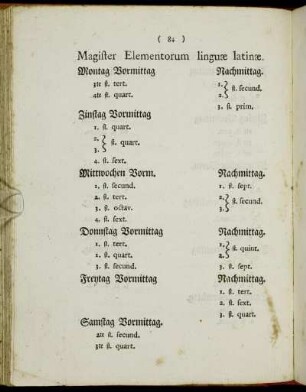 ( 84 )
Magister Elementorum linguæ latinæ.
Montag Vormittag Nachmittag.
3tt st. tert. 1. } st. secund.
4tt st. quart. 2.
3. st. prim.
Zinstag Vormittag
1. st. quart.
2. } st. quart.
3.
4. st. sext.
Mittwochen Vorm. Nachmittag.
1. st. secund. 1. st. sept.
2. st. tert. 2. } st. secund.
3. st. octav. 3.
4. st. sext.
Donnstag Vormittag Nachmittag.
1. st. tert. 1. } st. quint.
2. st. quart. 2.
3. st. secund. 3. st. sept.
Freytag Vormittag Nachmittag.
1. st. tert.
2. st. sext.
3. st. quart.
Samstag Vormittag.
2tt st. secund.
3tt st. quart.